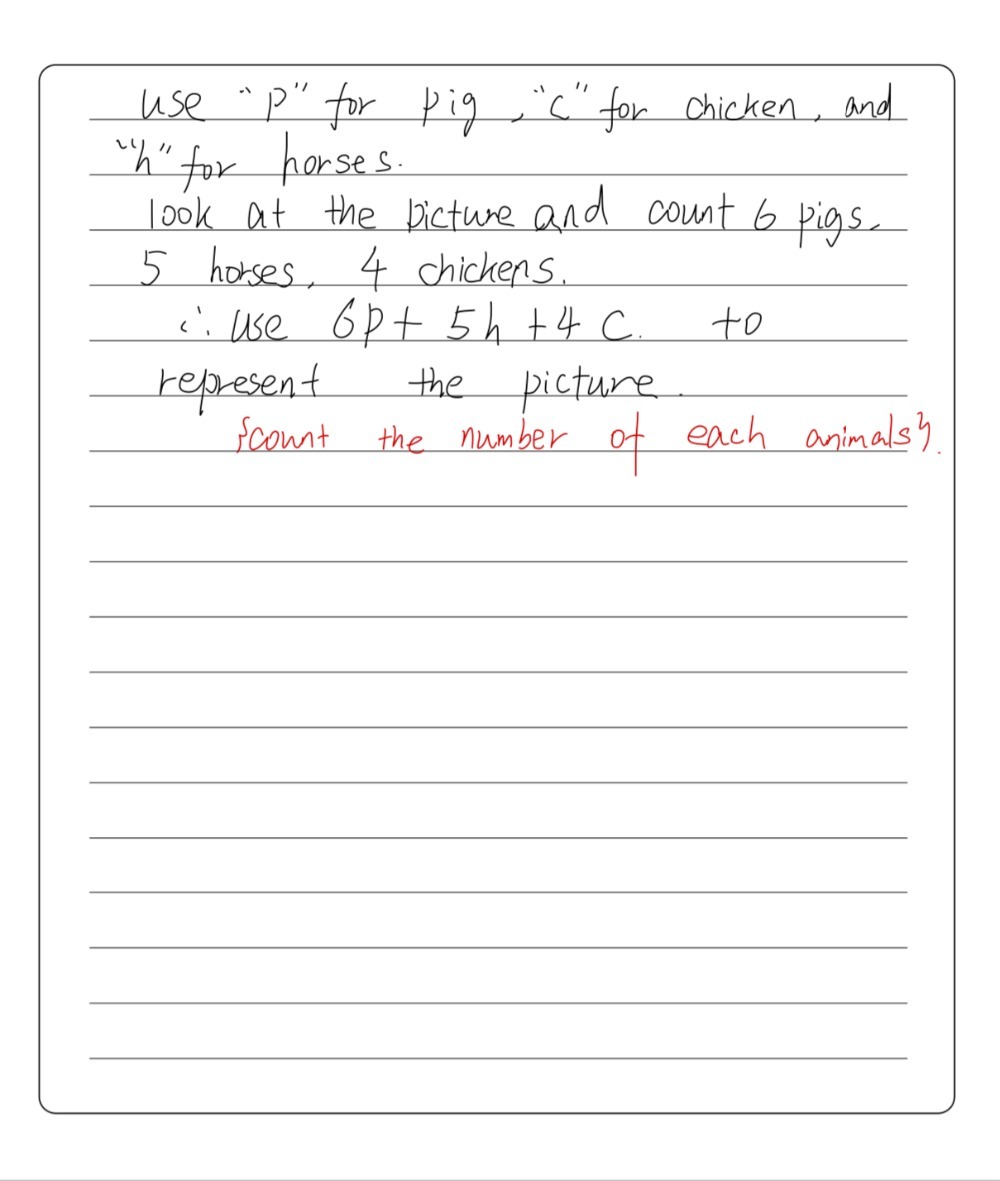 use "p" for pig, "c" for chicken, and
"h" for horses.
look at the picture and count 6 pigs.
5 horses, 4 chickens.
∴ use 6p + 5h + 4c. to
represent the picture.
{count the number of each animals}.